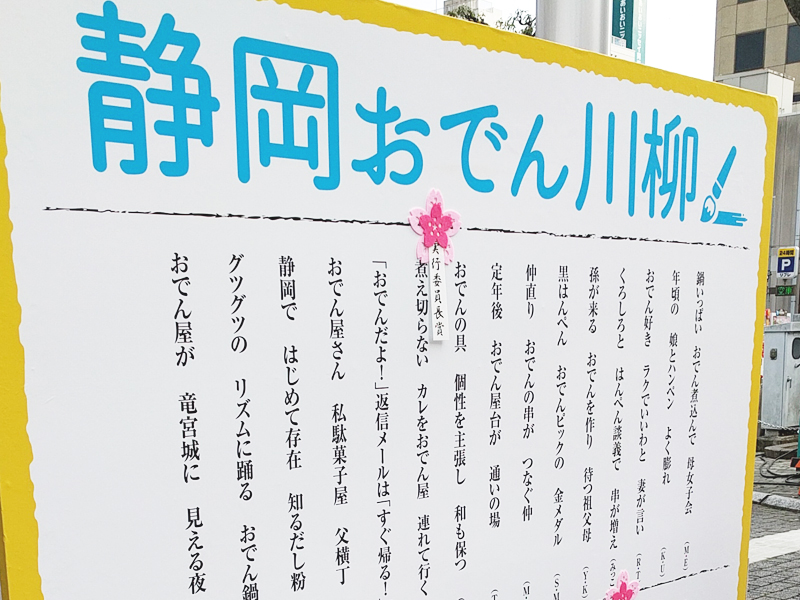 静岡おでん川柳
鍋いっぱい　おでん煮込んで　母女子会　（M・E）
年頃の　娘とハンペン　よく膨れ　（K・U）
おでん好き　ラクでいいわと　妻が言い　（R・T
くろしろと　はんぺん談義で　串が増え　（みっこ
孫が来る　おでんを作り　待つ祖父母　（Y・K）
黒はんぺん　おでんピックの　金メダル　（S・M
仲直り　おでんの串が　つなぐ仲　（M・
定年後　おでん屋台が　通いの場　（T
おでんの具　個性を主張し　和も保つ
実行委員長賞
煮え切らない　カレをおでん屋　連れて行く
「おでんだよ！」返信メールは「すぐ帰る！
おでん屋さん　私駄菓子屋　父横丁
静岡で　はじめて存在　知るだし粉
グツグツの　リズムに踊る　おでん鍋
おでん屋が　竜宮城に　見える夜
P